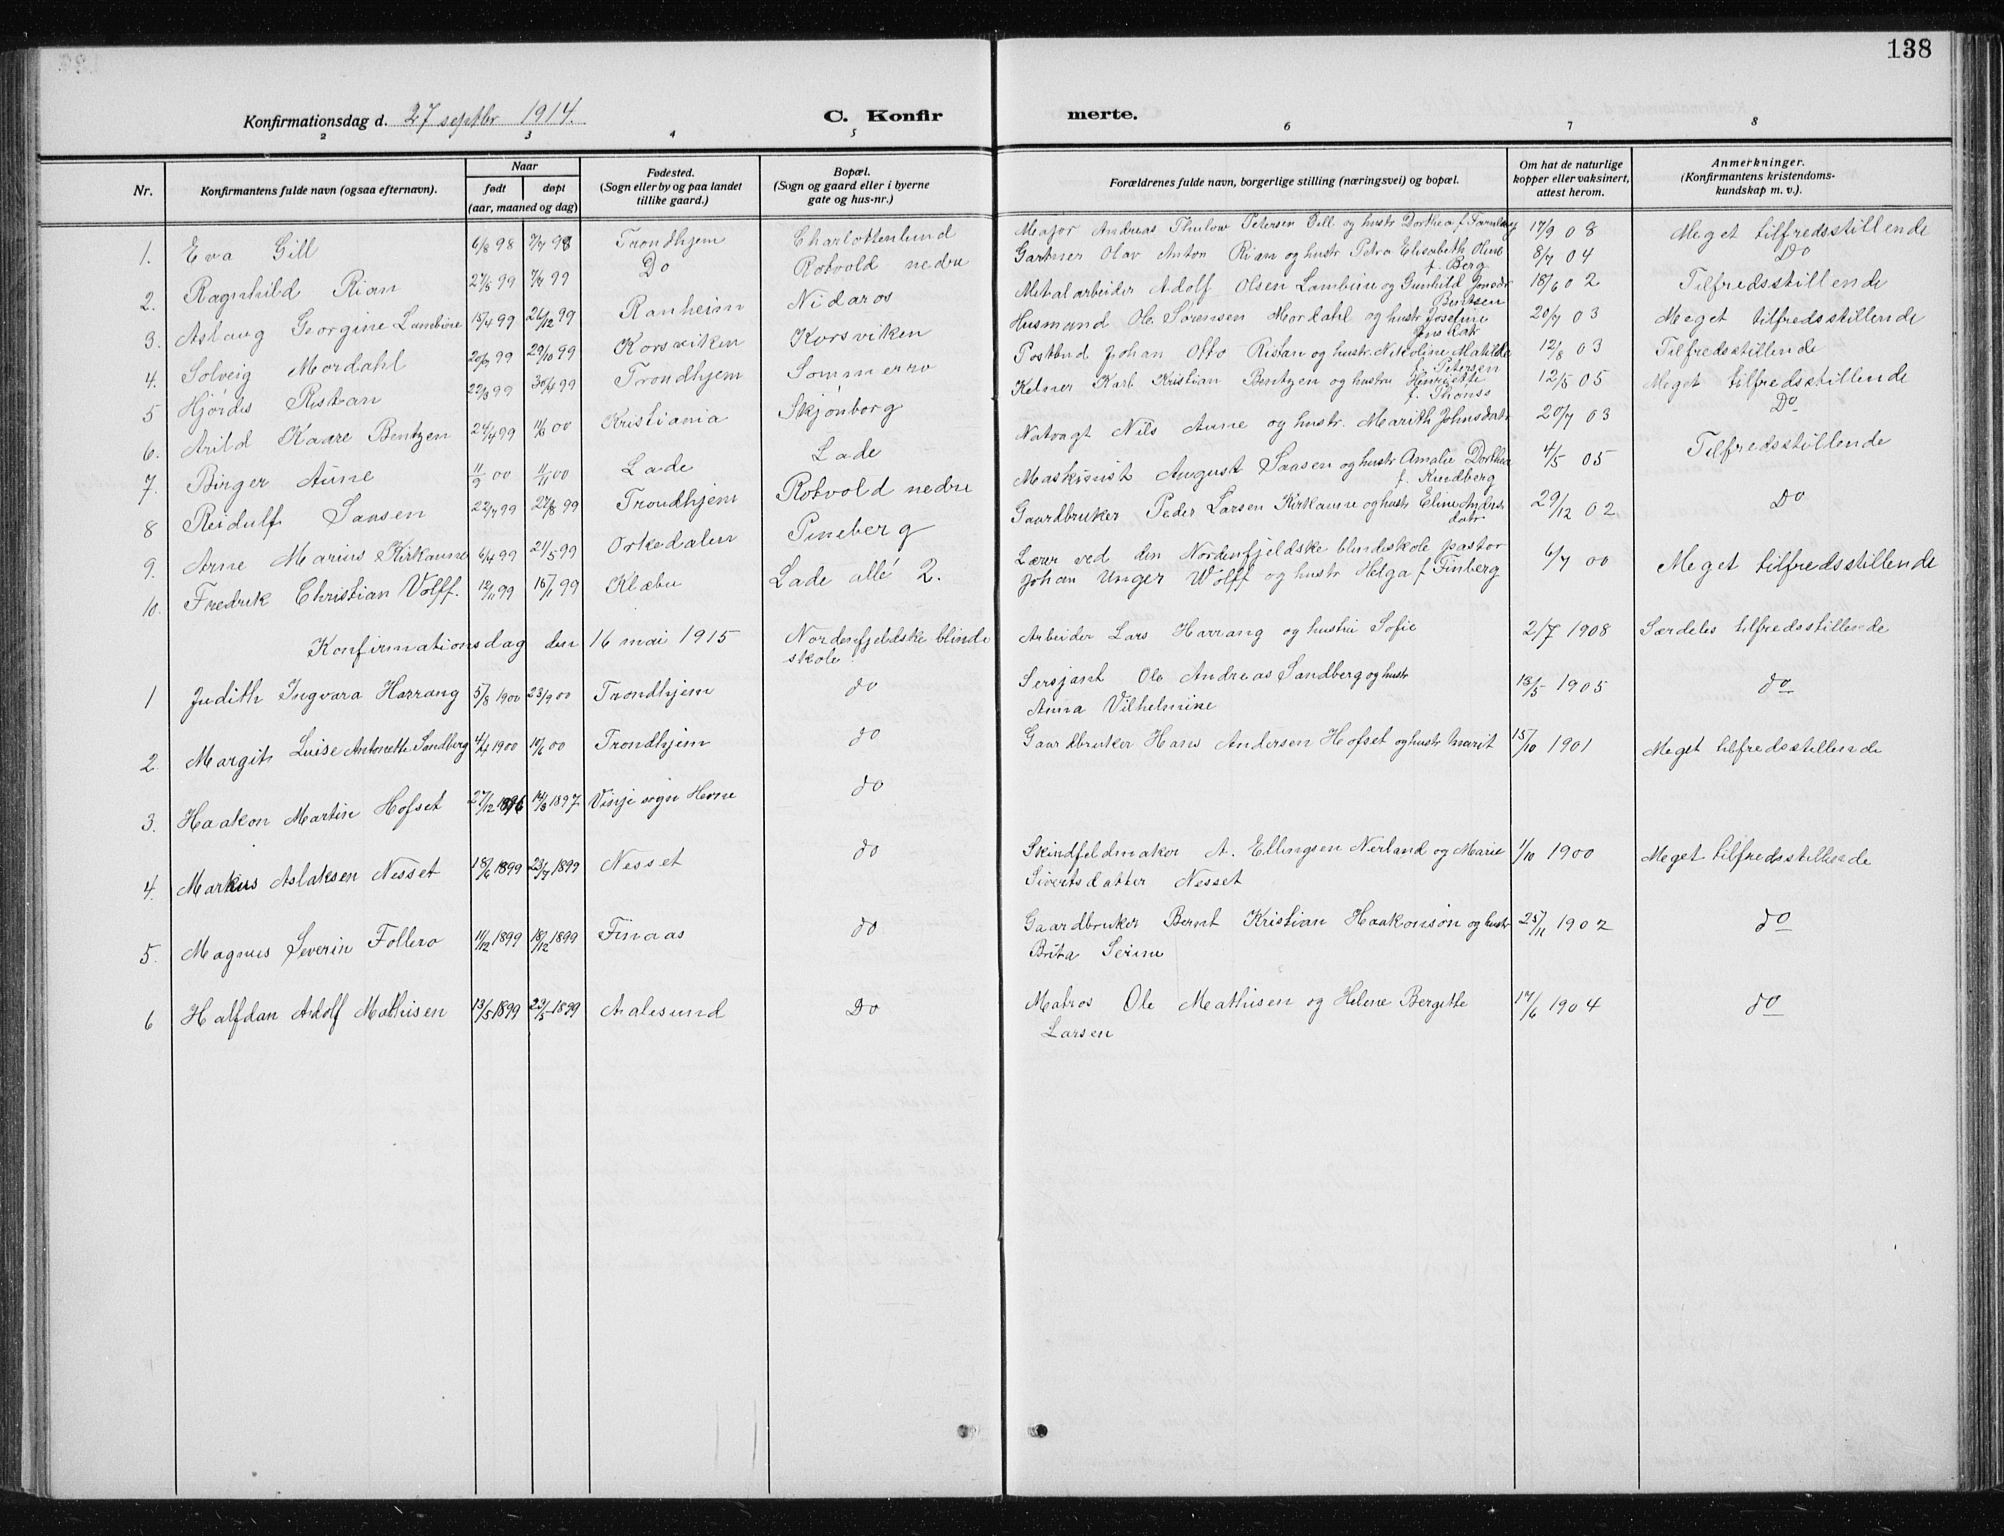 138
Konfirmationsdag d. 27 septbr 1914. C. Konfir merte.
2 3 4 5 6 7 8
Nr. Konfirmantens fulde navn (ogsaa efternavn). Naar født døpt (aar, maaned og dag) Fødested. (Sogn eller by og paa landet tillike gaard.) Bopæl. (Sogn og gaard eller i byerne gate og hus-nr.) Forældrenes fulde navn, borgerlige stilling (næringsvei) og bopæl. Om hat de naturlige kopper eller vaksinert, attest herom. Anmerkninger. (Konfirmantens kristendomskundskap m. v.).
1. Eva Gill 6/8 98 Trondhjem Charlottenlund Major Andreas Petersen Gill og hustr Dorthea f. 17/9 08 Meget tilfredsstillende
2. Ragnhild Rian 27/5 99 7/7 99 Do Rotvold nedre Gartner Olav Anton Rian og hustr Petra Elisabeth Oline f. Berg 8/7 04 Do
3. Aslaug Georgine 15/4 99 26/12 99 Ranheim Nidaros Metalarbeider Adolf Olsen og Gunhild 18/6 02 Tilfredsstillende
4. Solveig Mordahl 20/9 99 29/10 99 Korsviken Korsviken Husmand Ole Sørensen Mordahl og hustr Josefine 20/7 03 Meget tilfredsstillende
5 Hjördis Ristan 22/3 99 30/4 99 Trondhjem Sommerro Postbud Johan Otto Ristan og hustr. Nikoline Matilde f. Petersen 12/8 03 Tilfredsstillende
6. Arild Kaare Bentzen 24/4 99 Kristiania Skjönborg Kelner Karl Kristian Bentzen og hustru Henriette 12/5 05 Meget tilfredsstillende
7. Birger Aune Lade Lade Natvagt Nils Aune og hustr. Marith Johnsdatr 20/7 03 Do
8 Reidulf Saasen 22/7 99 27/8 99 Trondhjem Rotvold nedre Maskinist August Saasen og hustr Amalie Dorthea 4/5 05 Tilfredsstillende
9. Arne Marius Kirkaune 6/4 99 21/5 99 Orkedalen Pineberg Gaardbruker Peder Larsen Kirkaune og hustr Eline 29/12 02 Do
10. Fredrik Christian Volff. Klæbu Lade allé 2. Lærer ved den Nordenfjeldske blindeskole pastor
Johan Unger Wolff og hustr Helga f Finberg 6/7 00 Meget tilfredsstillende
Konfirmationsdag den 16 mai 1915
1 Judith Ingvara Harrang 5/8 1900 23/9 00 Trondhjem Nordenfjeldske blinde skole. Arbeider Lars Harrang og hustru Sofie 2/7 1908 Særdeles tilfredsstillende
2. Margith Luise Antonette Sandberg 4/4 1900 10/6 00 Trondhjem do Sersjant Ole Andreas Sandberg og hustr
Anna Vilhelmine 18/5 1905 do
3. Haakon Martin Hofset 27/12 1896 14/3 1897 Vinje sogn Hevne do Gaardbruker Hans Andersen Hofset og hustr Marit 15/10 1901 Meget tilfredsstillende
do
4. Markus Aslaksen Nesset 18/6 1899 23/7 1899 Nesset do Skindfeldmaker A. Ellingsen Nerland og Marie
Sivertsdatter Nesset 1/10 1900 Meget tilfredsstillende
5. Magnus Severin Follerø 11/12 1899 18/12 1899 Finaas do Gaardbruker Bernt Kristian Haakonson og hustr
Brita Serine 25/11 1902 do
6 Halfdan Adolf Mathisen 13/5 1899 22/5 1899 Aalesund Do Matros Ole Mathisen og Helene Bergitte
Larsen 17/6 1904 do